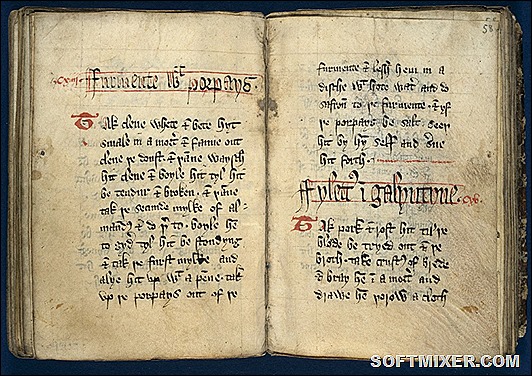 .Cxvi. Furmente wt porpays.
Tak clene whete & bete hyt
smale in a mort' & fanne out
clene þe doust . & þanne waysch
hit clene & boyle hit tyl hit
be tendur & broken . & þanne
tak þe secunde mylke of al-
mand' & do þ' to . boyle hē
to gyd' tyl hit be stondyng
& tak þe furst mylke and
alye hit up wt a penne . tak
vp þe porpays out of þe
58
furmente & lesh hem in a
dische wt hote wat' and do
safron to þe furmente . & yf
þe porpays be salt seep
hit by hȳ self and s'ue
hit forth .
Fylett' ī galyntyne
Tak pork & rost hit til þe
blode be tryed out & þe
broth . take crust' of brede
& bray hē ī a mort' and
drawe hē þorow a cloth
SOFTMIXER.COM